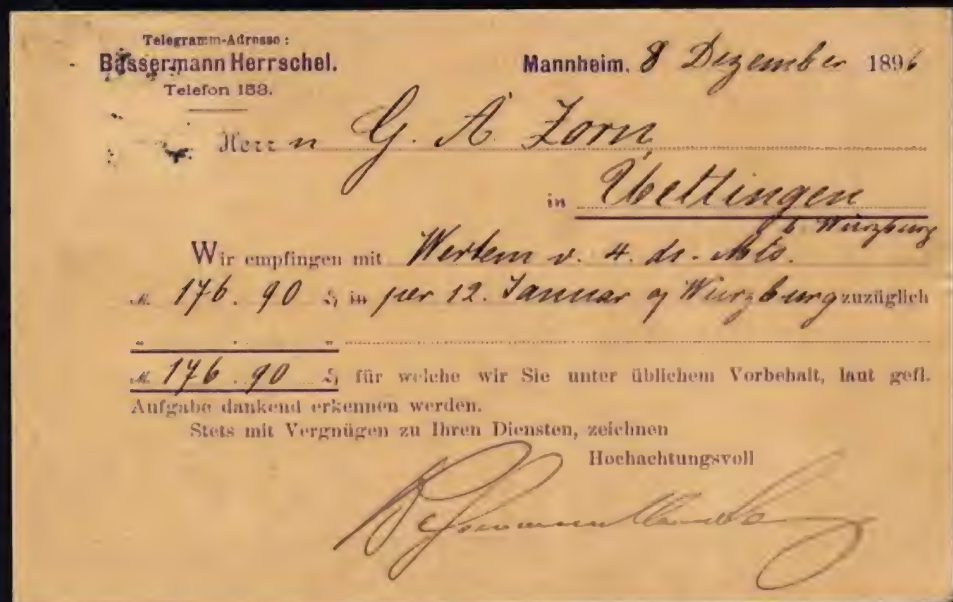 Telegramm-Adresse:
Bassermann Herrschel.
Telefon 153.
Mannheim, 8 Dezember 1896
Herr n G. A. Zorn,
in Übettingen
b. Würzburg
Wir empfingen mit Wertem v. 4. ds. Mts.
M. 176.90 ₰ in per 12. Januar Würzburg zuzüglich
" . "
M. 176.90 ₰ für welche wir Sie unter üblichem Vorbehalt, laut gefl.
Aufgabe dankend erkennen werden.
Stets mit Vergnügen zu Ihren Diensten, zeichnen
Hochachtungsvoll